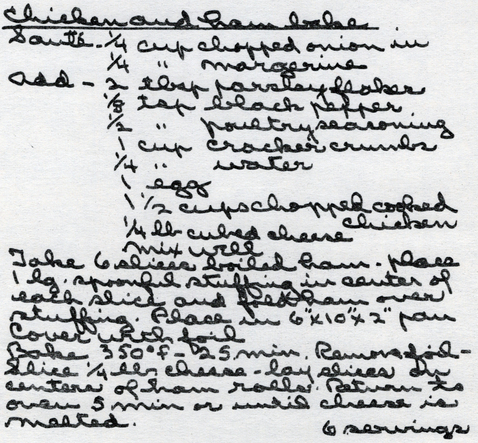 Chicken and ham bake
Sauté - 1/4 cup chopped onion in
1/4 " margerine
Add - 2 tbsp parsley flakes
1/8 tsp black pepper
1/2 " poultry seasoning
1 cup cracker crumbs
1/4 " water
1 egg
1 1/2 cups chopped cooked
chicken
1/4 lb cubed cheese
Mix well
Take 6 slices boiled ham - place
1 lg. spoonful stuffing in center of
each slice and ham over
stuffing. Place in 6"x10"x2" pan
Cover with foil
Bake 350°F - 25 min. Remove foil -
Slice 1/4 lb cheese - lay slices on
centers of ham rolls. Return to
oven 5 min or until cheese is
melted.
6 servings